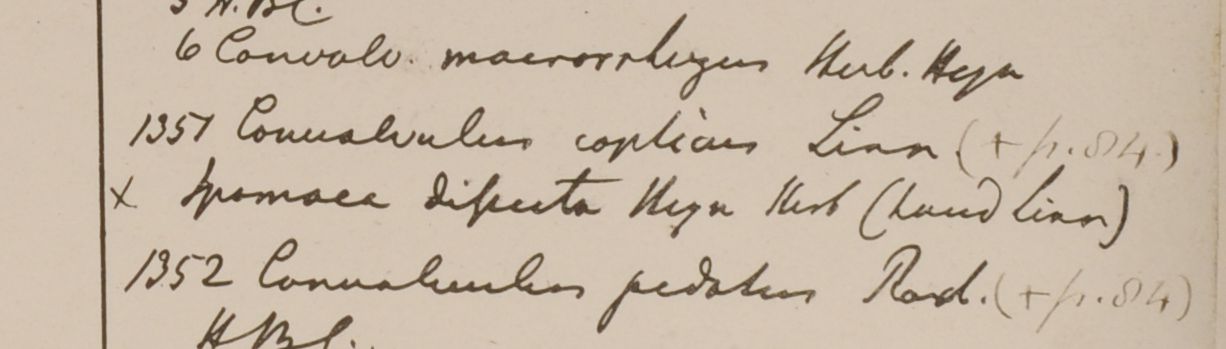 5 H.B.C.
6 Convolv. macrorrhizus Herb. Heyn
1351 Convolvulus copticus Linn (+ p. 84.)
x Ipomaea dissecta Heyn Herb (haud Linn)
1352 Convolvulus pedatus Roxb. (+ p. 84)
H.B.C.